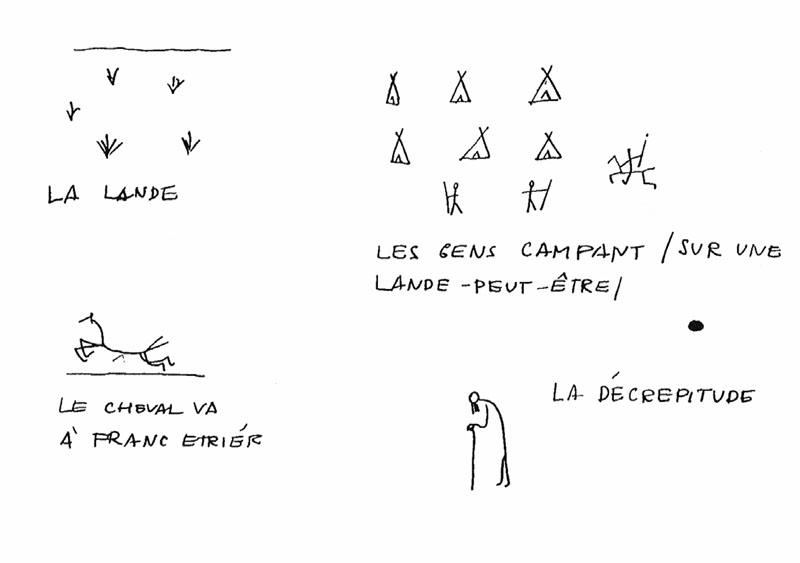 LA LANDE
LES GENS CAMPANT /SUR UNE
LANDE -PEUT-ÊTRE/
LE CHEVAL VA
À FRANC ETRIÉR
LA DÉCREPITUDE